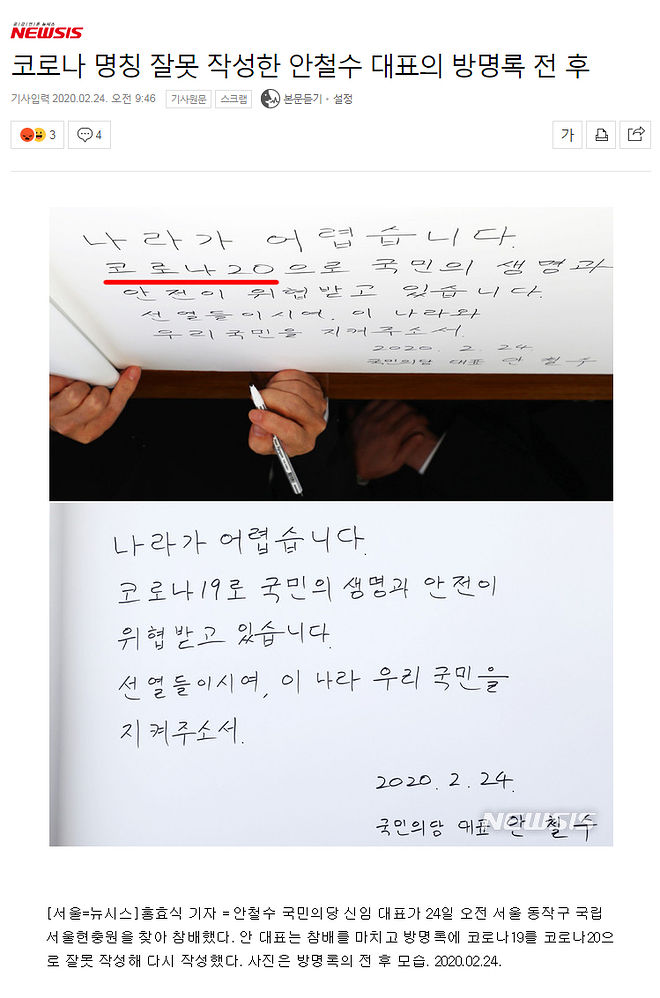 공감언론 뉴시스
NEWSIS
코로나 명칭 잘못 작성한 안철수 대표의 방명록 전 후
기사입력 2020.02.24. 오전 9:46 기사원문 스크랩 본문듣기 · 설정
3 4 가
나라가 어렵습니다.
코로나20으로 국민의 생명과
안전이 위협받고 있습니다.
선열들이시여. 이 나라와
우리국민을 지켜주소서.
2020. 2. 24
국민의당 대표 안철수
나라가 어렵습니다.
코로나19로 국민의 생명과 안전이
위협받고 있습니다.
선열들이시여, 이 나라 우리 국민을
지켜주소서.
2020. 2. 24.
국민의당 대표 안철수
NEWSIS
[서울=뉴시스]홍효식 기자 = 안철수 국민의당 신임 대표가 24일 오전 서울 동작구 국립
서울현충원을 찾아 참배했다. 안 대표는 참배를 마치고 방명록에 코로나19를 코로나20으
로 잘못 작성해 다시 작성했다. 사진은 방명록의 전 후 모습. 2020.02.24.